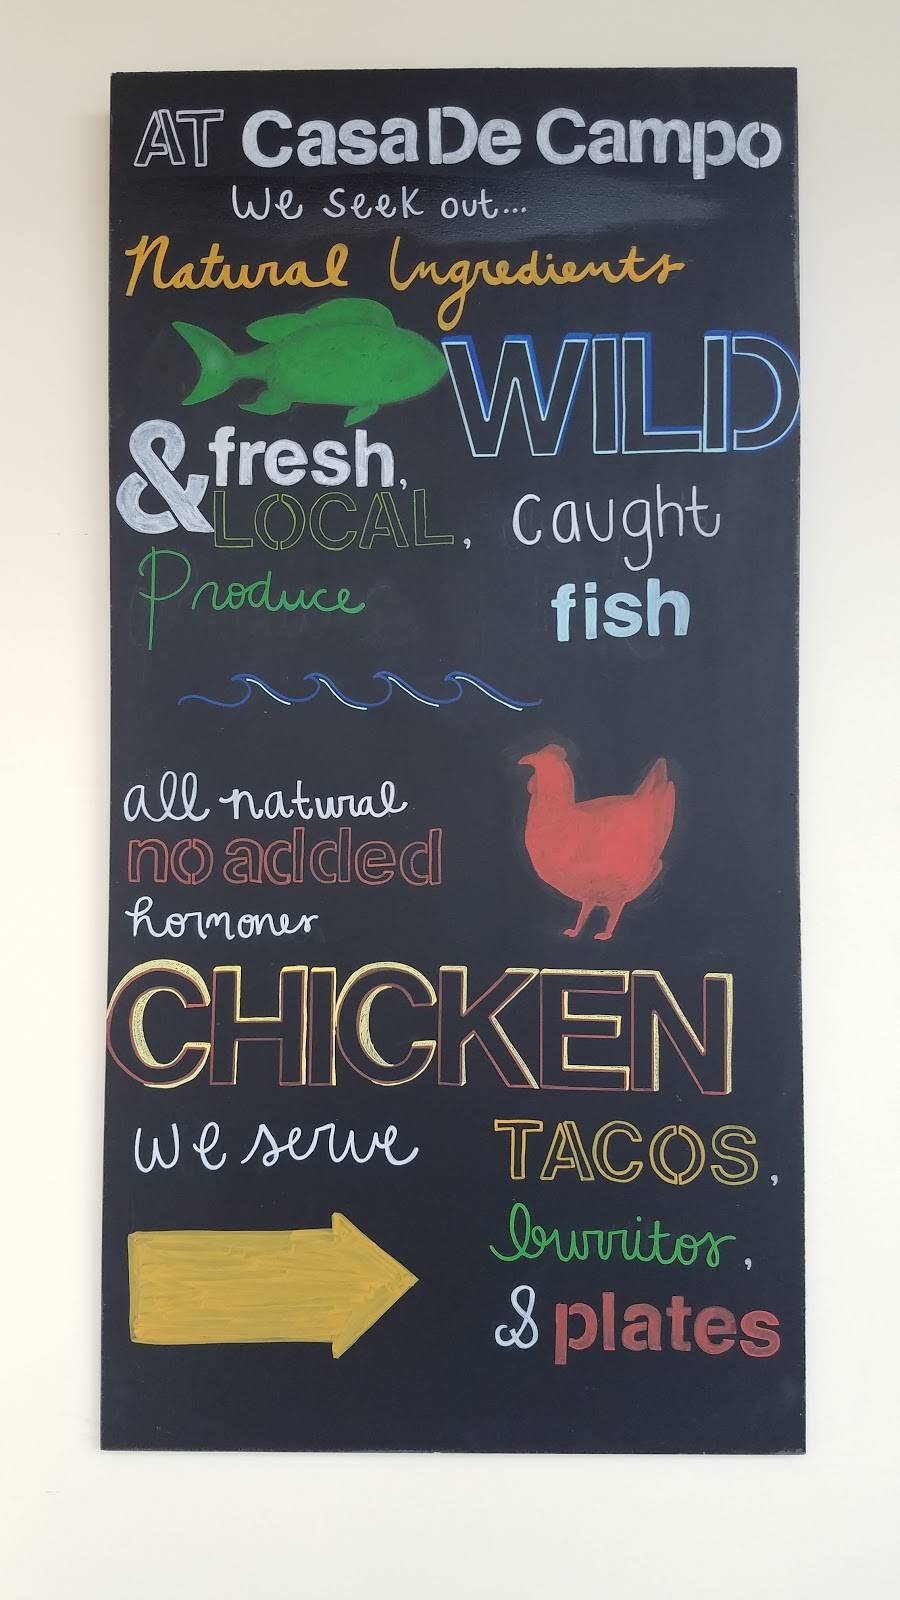 AT Casa De Campo
We seek out...
Natural Ingredients
WILD
caught
fish
& fresh,
LOCAL,
Produce
all natural
no added
hormones
CHICKEN
we serve
TACOS,
burritos,
& plates